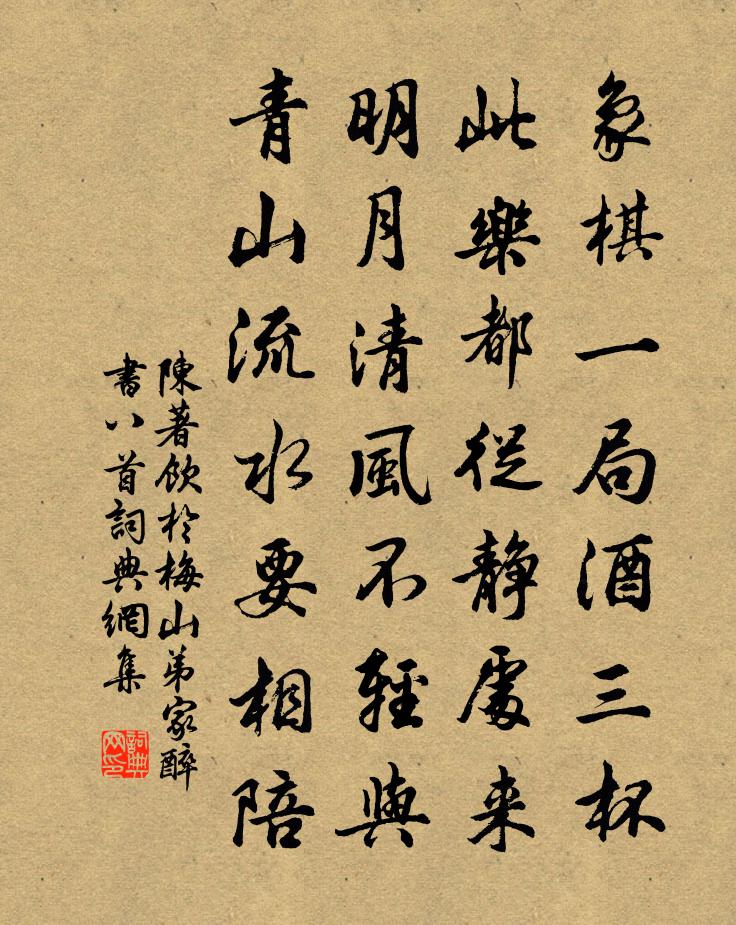 象棋一局酒三杯
此樂都從静處来
明月清風不輕與
青山流水要相陪
陳著飲於梅山弟家醉
書八首詞典網集
詞典
网印